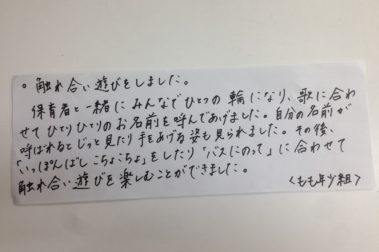 。触れ合い遊びをしました。
保育者と一緒にみんなでひとつの輪になり、歌に合わ
せてひとりひとりのお名前を呼んであげました。自分の名前が
呼ばれるとじっと見たり手をあげる姿も見られました。その後、
「いっぽんばしこちょこちょ」をしたり「バスにのって」に合わせて
触れ合い遊びを楽しむことができました。
〈もも年少組〉